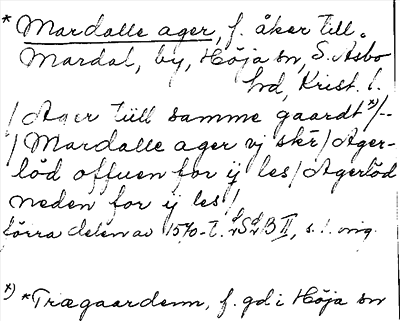 * Mardalle ager, f. åker till
Mardal, by, Höja sn, S. Åsbo
hd, Krist. l.
/ Ager till samme gaardt *)/--
/ Mardalle ager vj skr / Ager-
löd offuen for ij les / Agerlöd
neden for ij les /
förra delen av 1570-t. II, s. 1. orig.
*) *Trægaardenn, f. gd i Höja sn